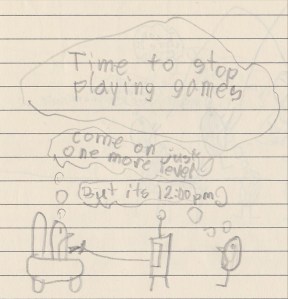 Time to stop
playing games
come on just
one more level
But its 12:00pm